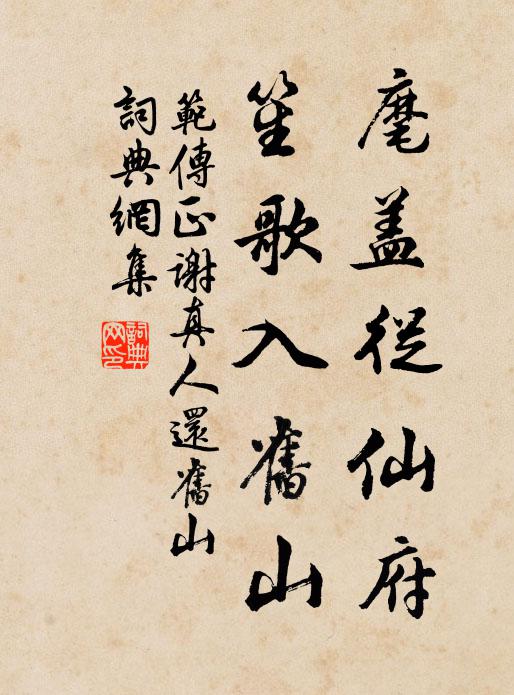 麾盖從仙府
笙歌入舊山
範傳正謝真人還舊山
詞典網集
詞典網印